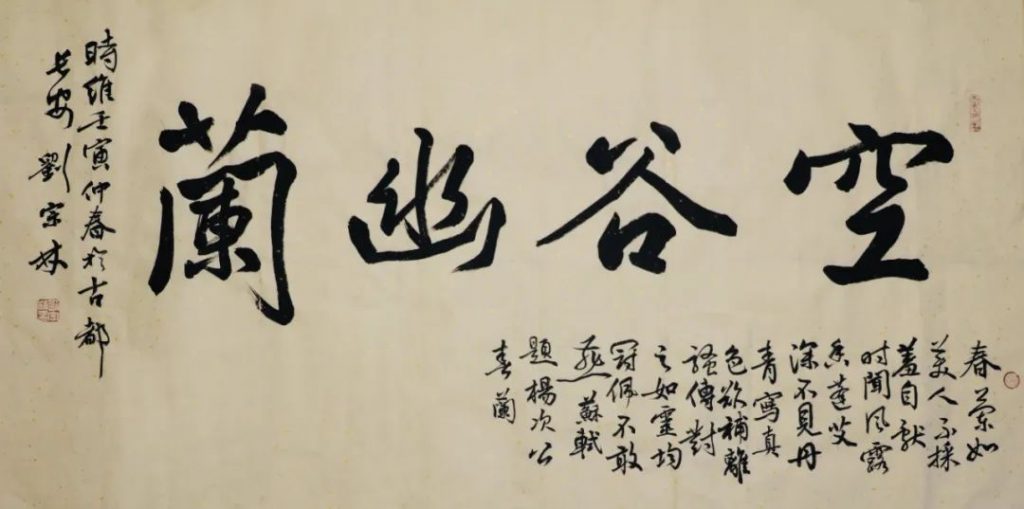 空谷幽蘭
春蘭如
美人不採
羞自献
时聞風露
香蓬艾
深不見丹
青寫真
色欲補離
騷傳對
之如靈均
冠佩不敢
燕 蘇軾
題楊次公
春蘭
時維壬寅仲春於古都
长安 劉宗林